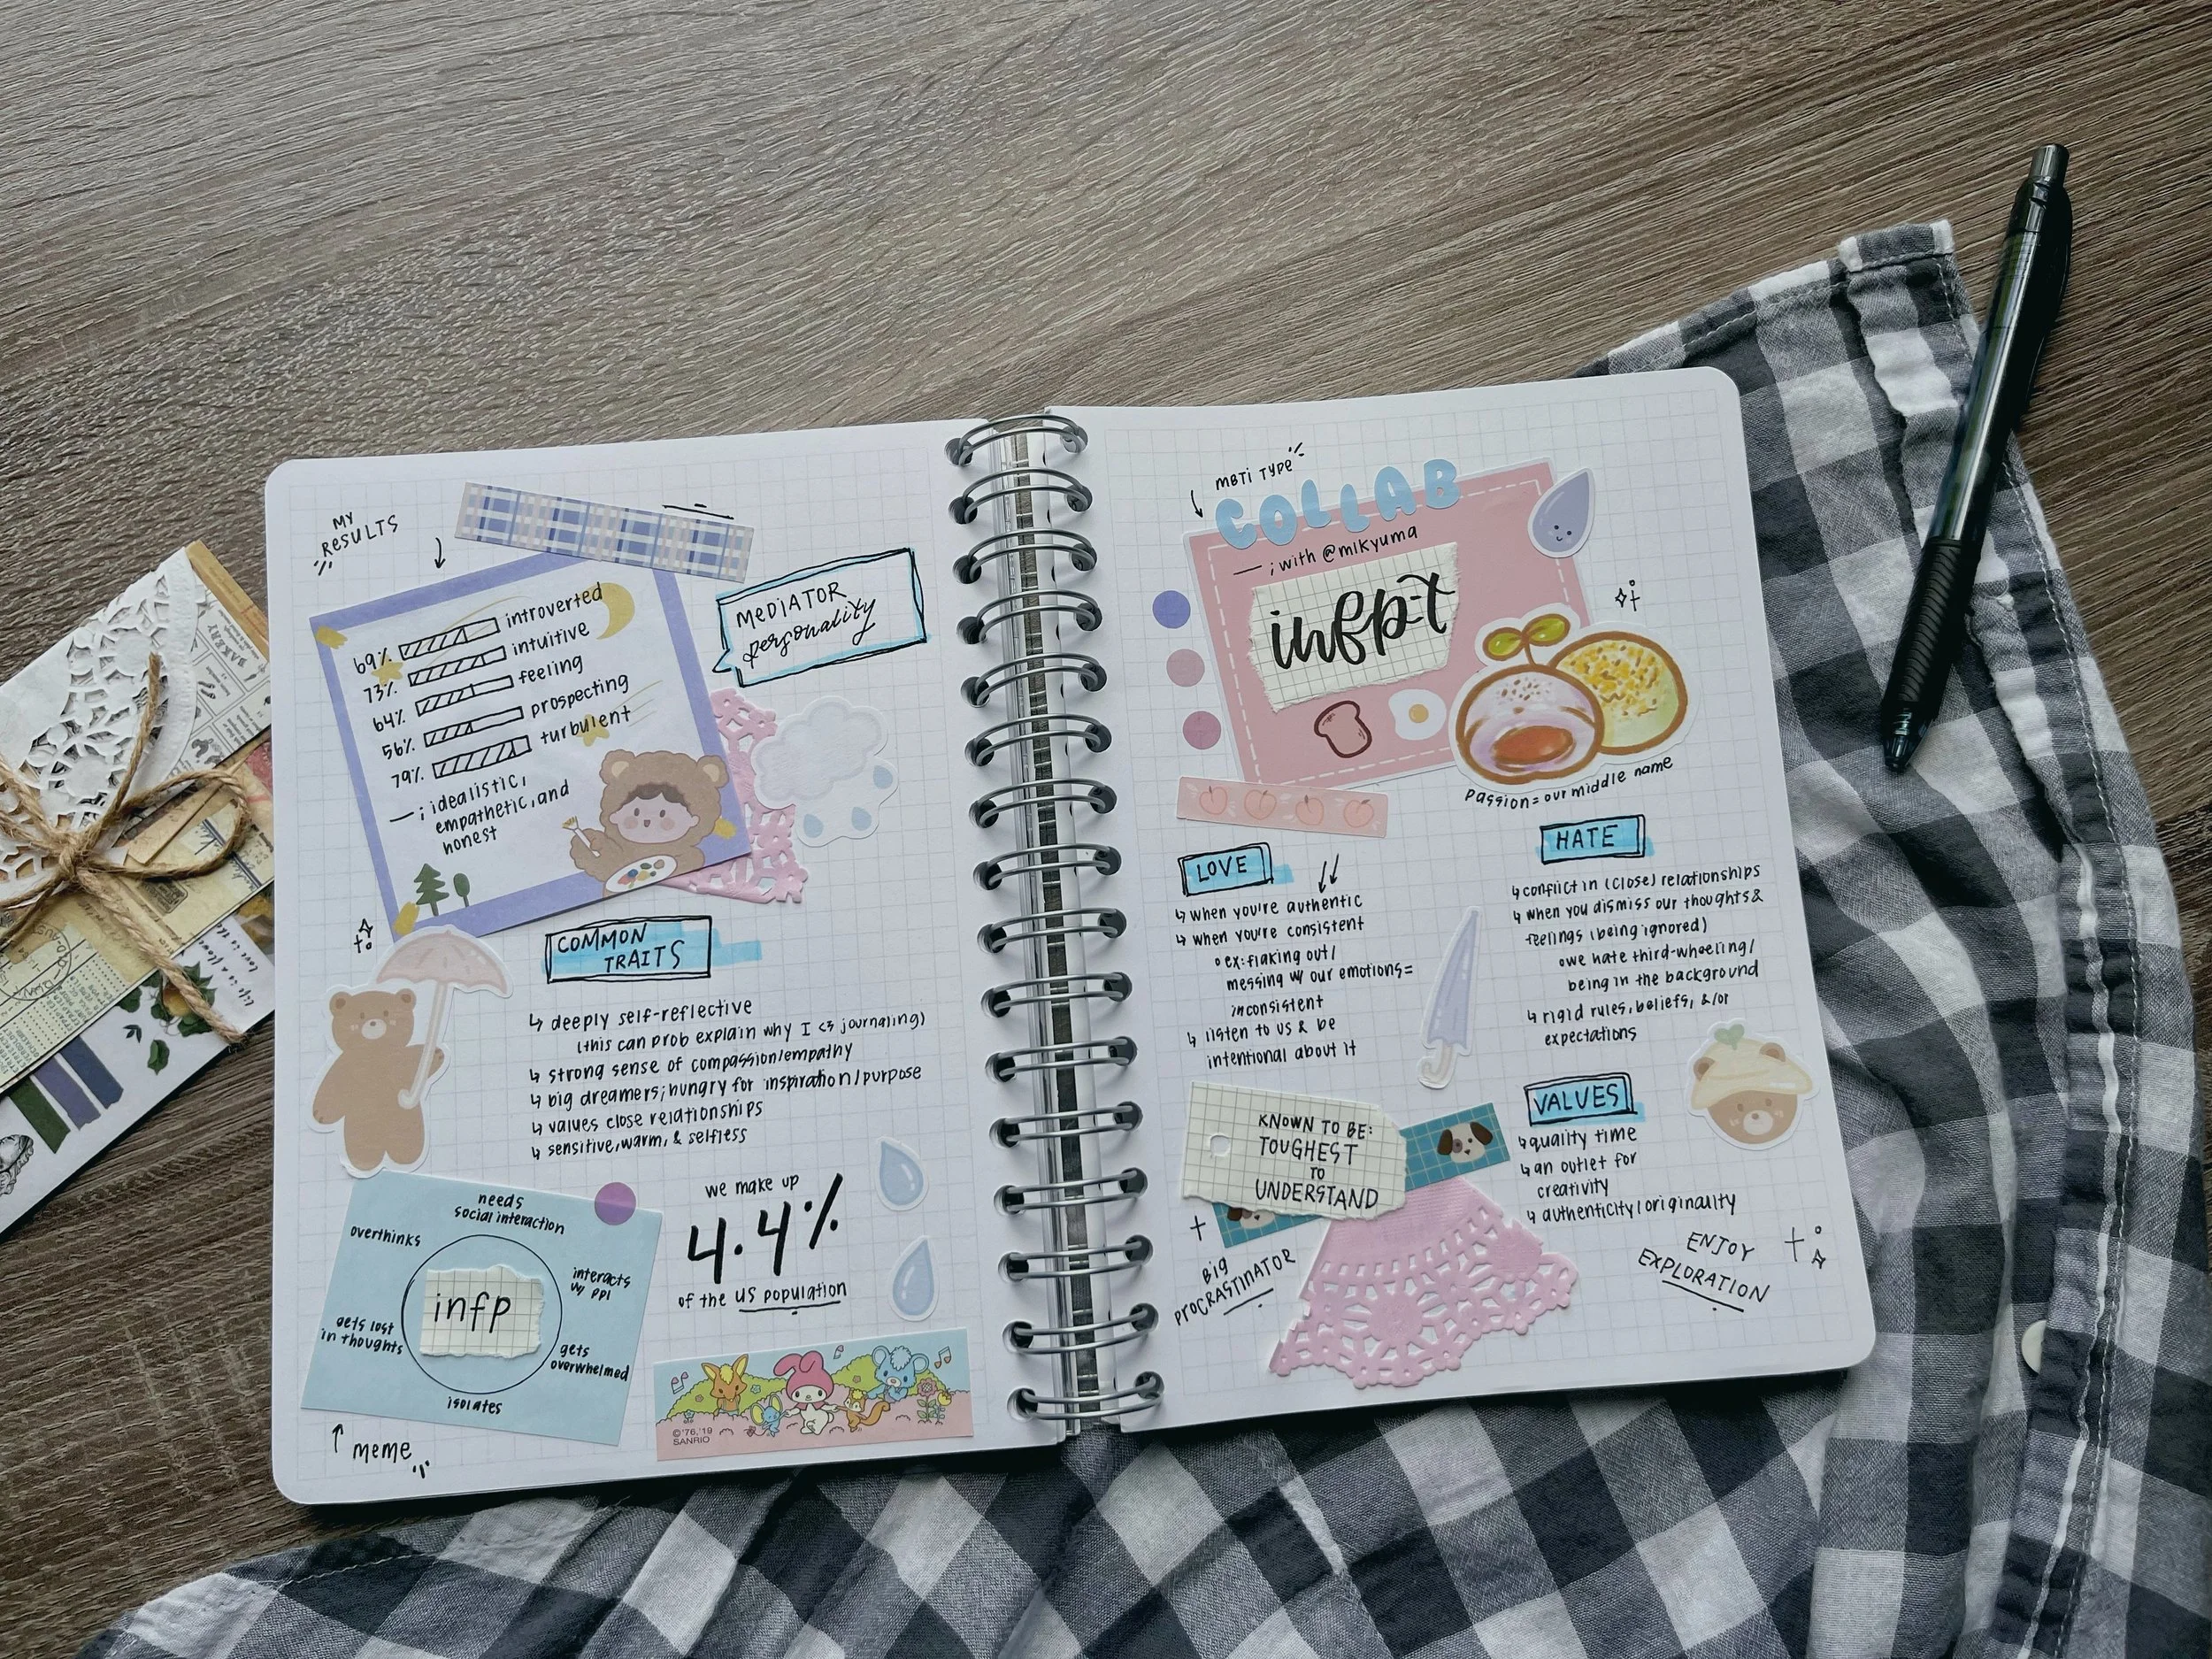 MY
RESULTS
69% introverted
73% intuitive
64% feeling
56% prospecting
79% turbulent
—; idealistic,
empathetic, and
honest
MEDIATOR
personality
COMMON
TRAITS
↳ deeply self-reflective
(this can prob explain why I <3 journaling)
↳ strong sense of compassion/empathy
↳ big dreamers; hungry for inspiration/purpose
↳ values close relationships
↳ sensitive, warm, & selfless
needs
social interaction
overthinks
interacts
w/ ppl
infp
gets lost
in thoughts
gets
overwhelmed
isolates
↑ meme
we make up
4.4%
of the US population
©'76,'19
SANRIO
MBTI TYPE
COLLAB
—; with @mikyuma
infp-t
Passion = our middle name
LOVE
↳ when you're authentic
↳ when you're consistent
◦ ex: flaking out/
messing w/ our emotions =
inconsistent
↳ listen to us & be
intentional about it
HATE
↳ conflict in (close) relationships
↳ when you dismiss our thoughts &
feelings (being ignored)
◦ we hate third-wheeling/
being in the background
↳ rigid rules, beliefs, &/or
expectations
KNOWN TO BE:
TOUGHEST
TO
UNDERSTAND
VALUES
↳ quality time
↳ an outlet for
creativity
↳ authenticity/originality
BIG
PROCRASTINATOR
ENJOY
EXPLORATION
BAKERY